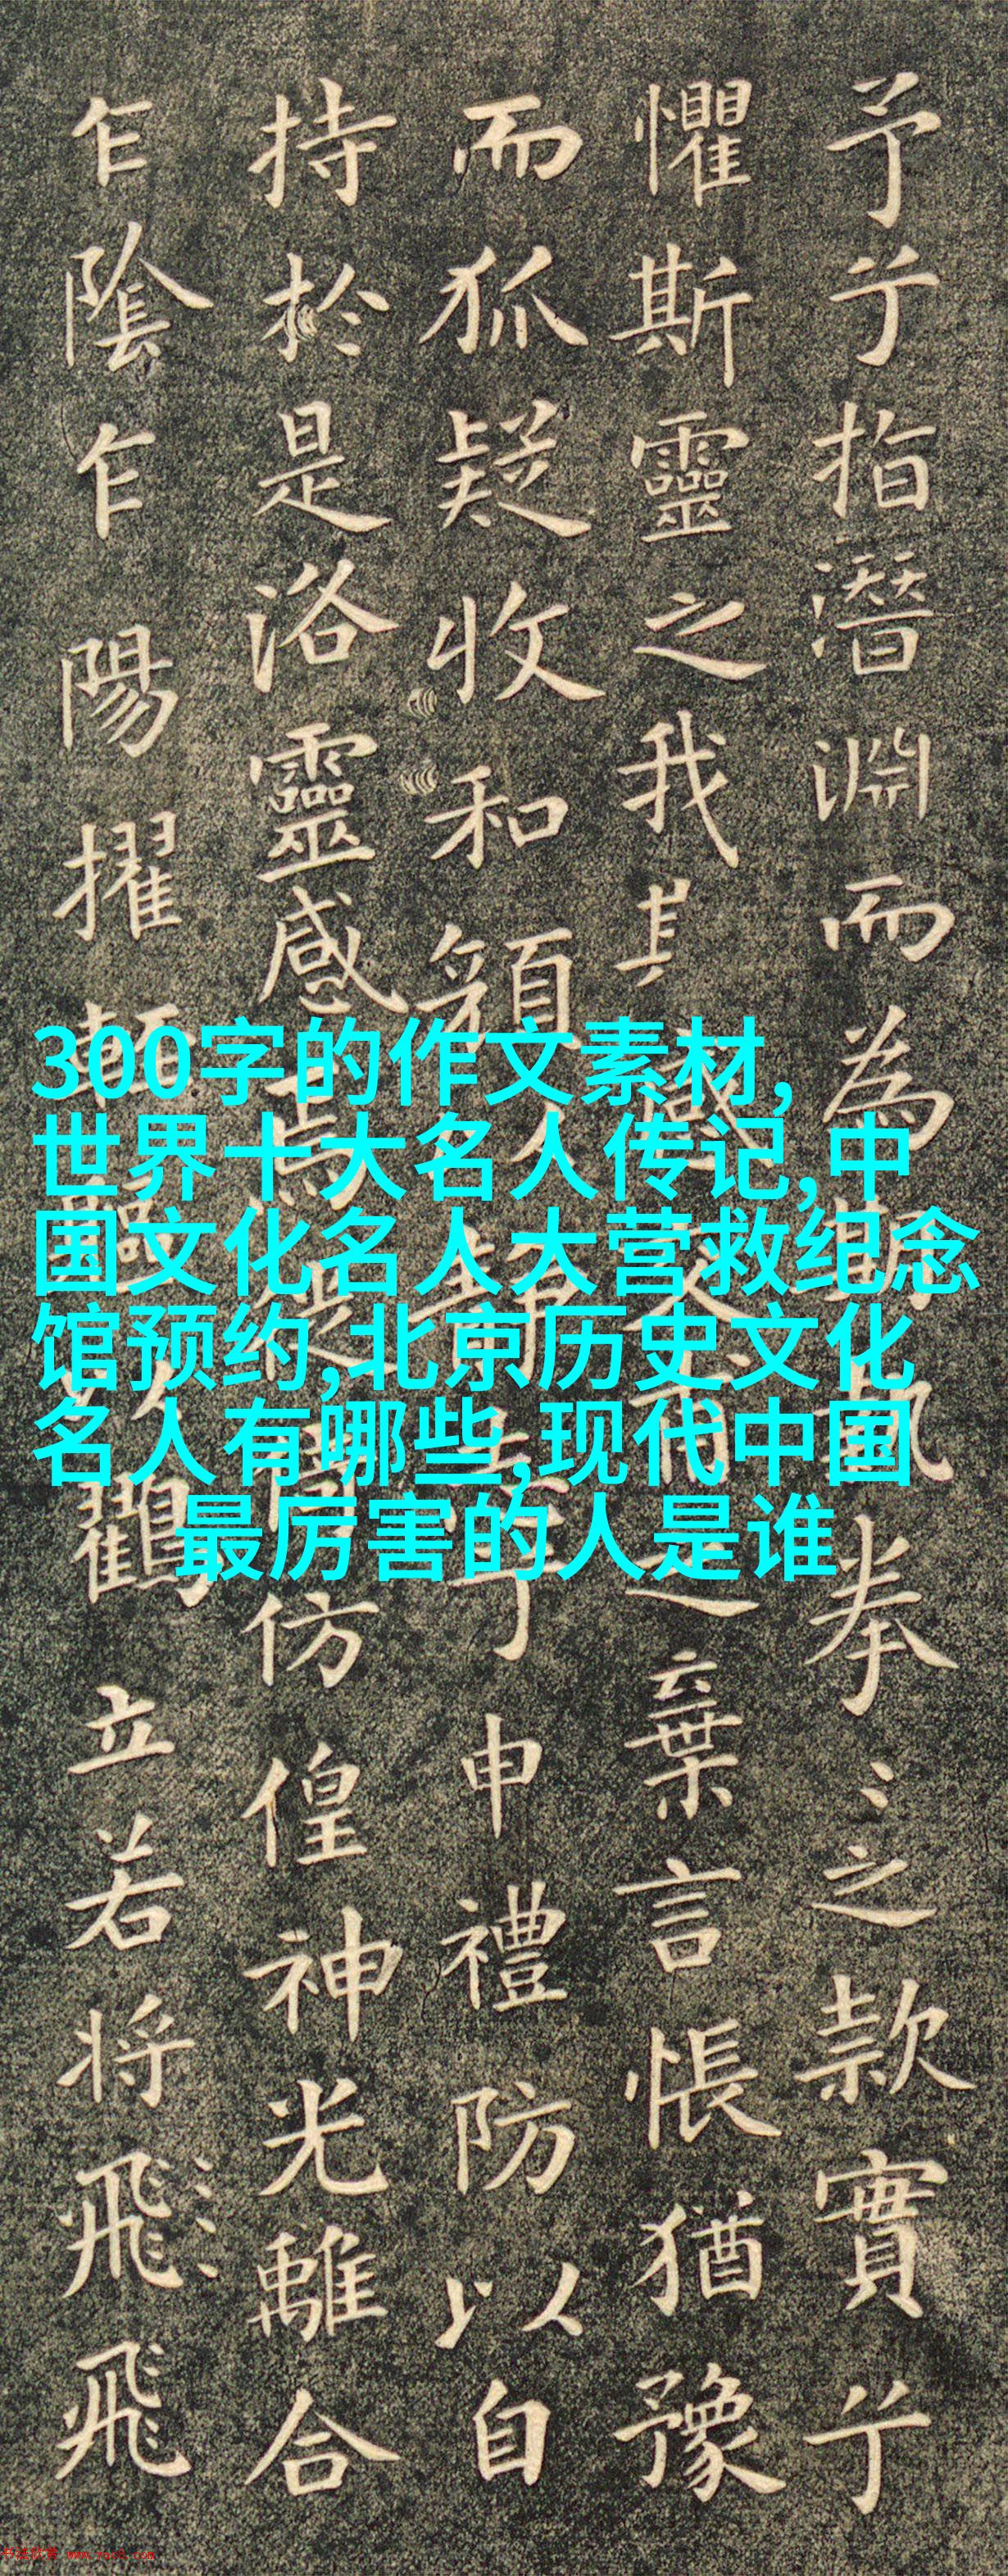 予兮指潛淵而為期執拳〻之款實兮
懼斯靈之我感交甫之棄言悵猶豫
而狐疑收和顏以靜志申禮防以自
持於是洛靈感焉徙倚仿偟神光離合
乍陰乍陽擢輕軀以鶴立若將飛飛
300字的作文素材,
世界十大名人传记,中
国文化名人大营救纪念
馆预约,北京历史文化
名人有哪些,现代中国
最厉害的人是谁